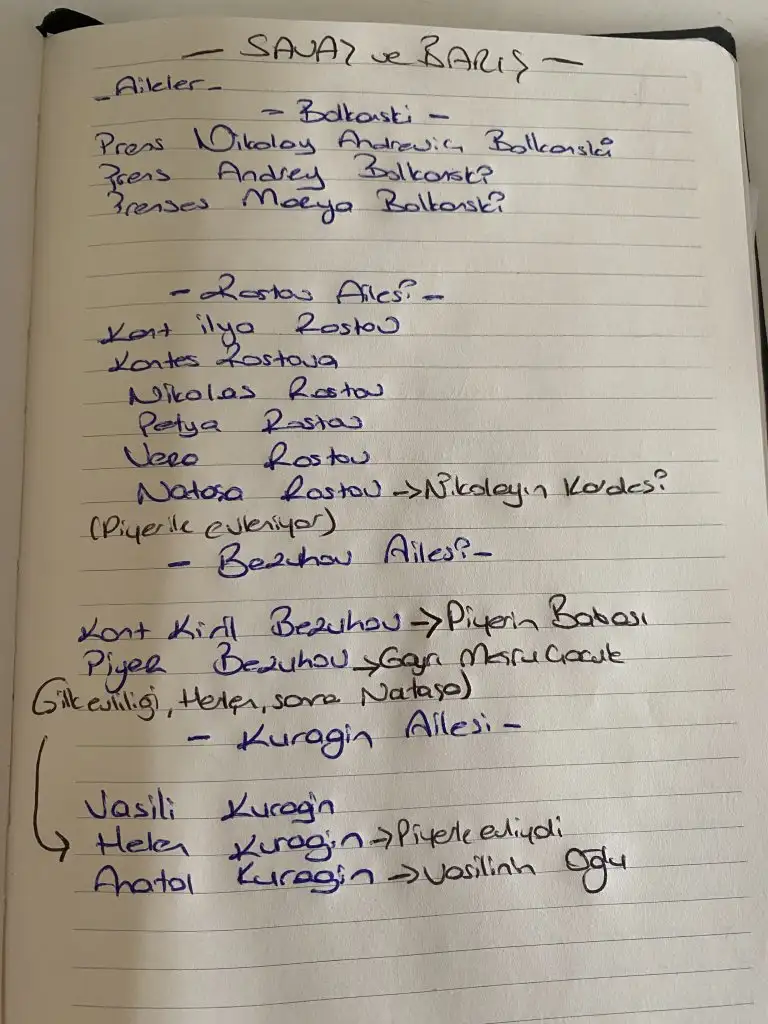 - SAVAŞ ve BARIŞ -
- Aileler -
- Bolkonski -
Prens Nikolay Andrevich Bolkonski
Prens Andrey Bolkonski
Prenses Marya Bolkonski
- Rostov Ailesi -
Kont ilya Rostov
Kontes Rostova
Nikolas Rostov
Petya Rostov
Vera Rostov
Nataşa Rostov → Nikolayın Kardeşi
(Piyerile evleniyor)
- Bezuhov Ailesi -
Kont Kiril Bezuhov → Piyerin Babası
Piyer Bezuhov → Gayri Meşru Çocuk
(ilk evliliği, Helen, sonra Nataşa)
- Kuragin Ailesi -
Vasili Kuragin
Helen Kuragin → Piyerle evliydi
Anatol Kuragin → Vasilinin Oğlu